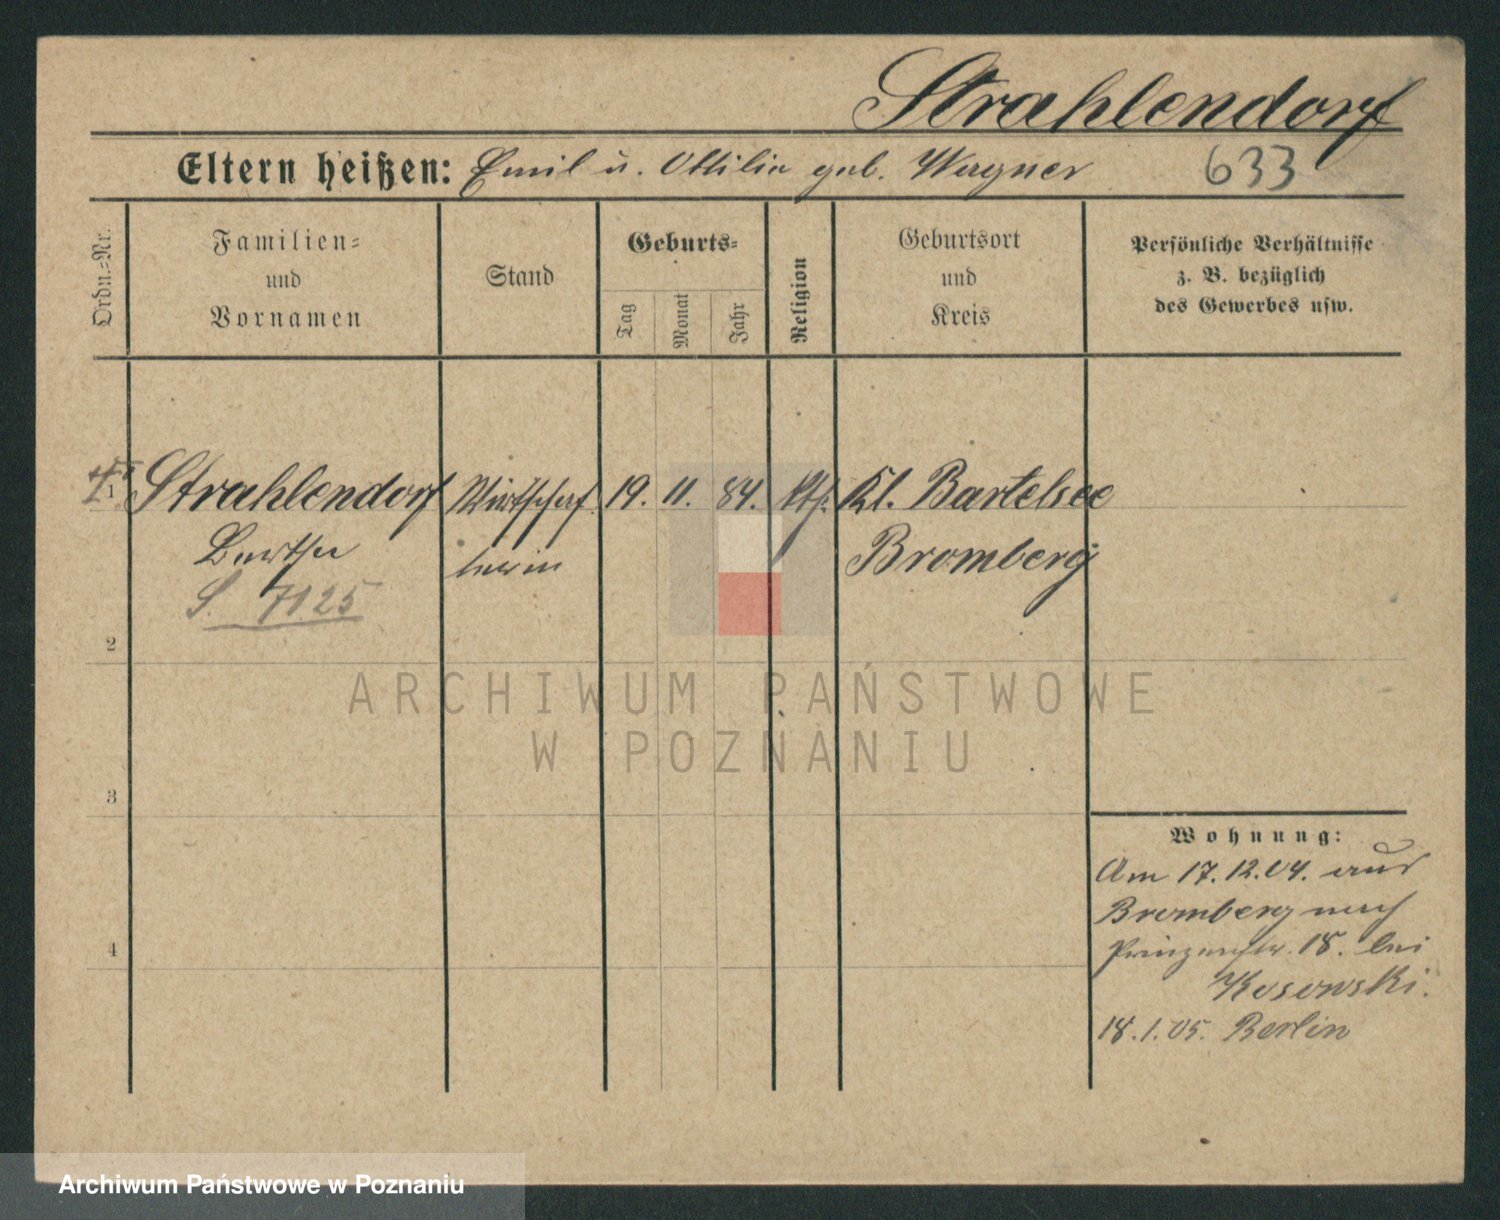 Strahlendorf
Eltern heißen: Emil u. Ottilie geb. Wagner 633
Ordn.=Nr.
Familien=
und
Vornamen
Stand
Geburts=
Tag
Monat
Jahr
Religion
Geburtsort
und
Kreis
Persönliche Verhältnisse
z. B. bezüglich
des Gewerbes usw.
1 Strahlendorf Wirtschaf 19. 11. 84. Kl. Bartelsee
Bertha terin Bromberg
S. 7125
2
3
4
Wohnung:
Am 17.12.04. aus
Bromberg nach
Prinzenstr. 18. bei
Kosowski.
18.1.05. Berlin
ARCHIWUM PAŃSTWOWE
W POZNANIU
Archiwum Państwowe w Poznaniu